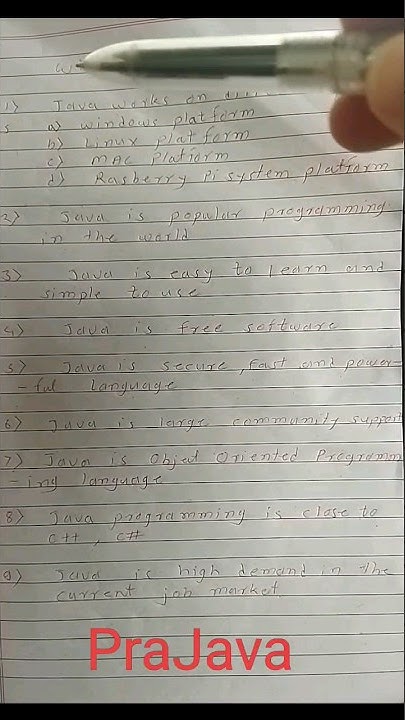 1) Java works on
a) windows platform
b) Linux platform
c) MAC Platform
d) Rasberry Pi system platform
2) Java is popular programming
in the world
3) Java is easy to learn and
simple to use
4) Java is free software
5) Java is secure, fast and power-
-ful language
6) Java is large community support
7) Java is Object Oriented Programm
-ing language
8) Java programming is close to
C++, C#
9) Java is high demand in the
current job market
PraJava